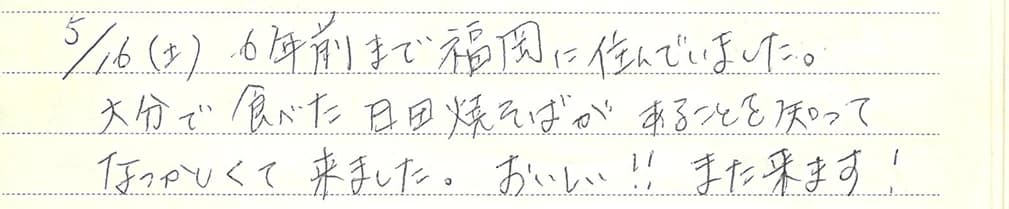 5/16(土) 6年前まで福岡に住んでいました。
大分で食べた日田焼そばが あることを知って
なつかしくて 来ました。おいしい!! また来ます!